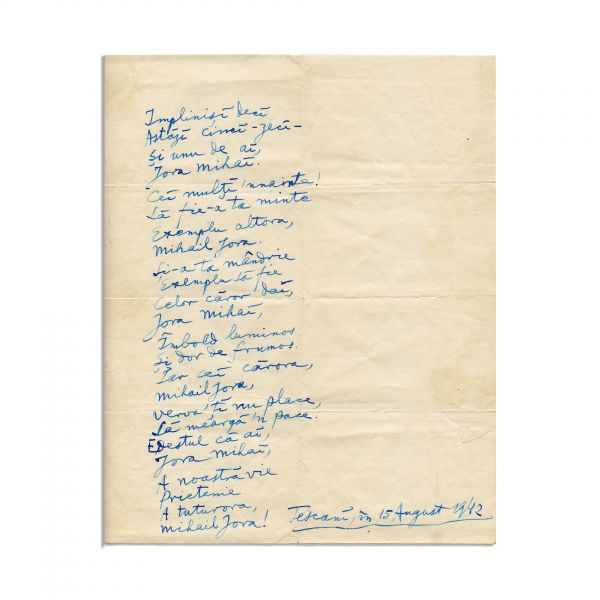 Împliniși deci
Astăzi cinci-zeci-
Și unu de ai,
Jora Mihai.
Cei mulți 'nnainte!
Să fie-a ta minte
Exemplu altora,
Mihail Jora.
Și-a ta mândrie
Exemplu să fie
Celor căror' dai,
Jora Mihai,
Îmbold luminos
Și dor de frumos.
Iar cei cărora,
Mihail Jora,
verva'ți nu place,
Să meargă 'n pace.
E destul că ai,
Jora Mihai,
A noastră vie
Prietenie
A tuturora,
Mihail Jora!
Tescani, în 15 August 1942